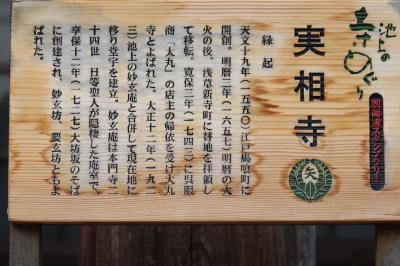 池上の
寺めぐり
開帥歴スタンプラリー
実相寺
矢
縁起
天文十九年(一五五〇)江戸馬喰町に
開創。明暦三年(一六五七)明暦の大
火の後、浅草新寺町に替地を拝領し
て移転。寛保三年(一七四三)に呉服
商「大丸」の店主の帰依を受け大丸
寺とよばれた。大正十二年(一九二
三)池上の妙玄庵と合併して現在地に
移り堂宇を建立。妙玄庵は本門寺二
十四世 日等聖人が隠棲した庵室で
享保十二年(一七二七)大坊坂のそば
に創建され、妙玄坊、要玄坊ともよ
ばれた。